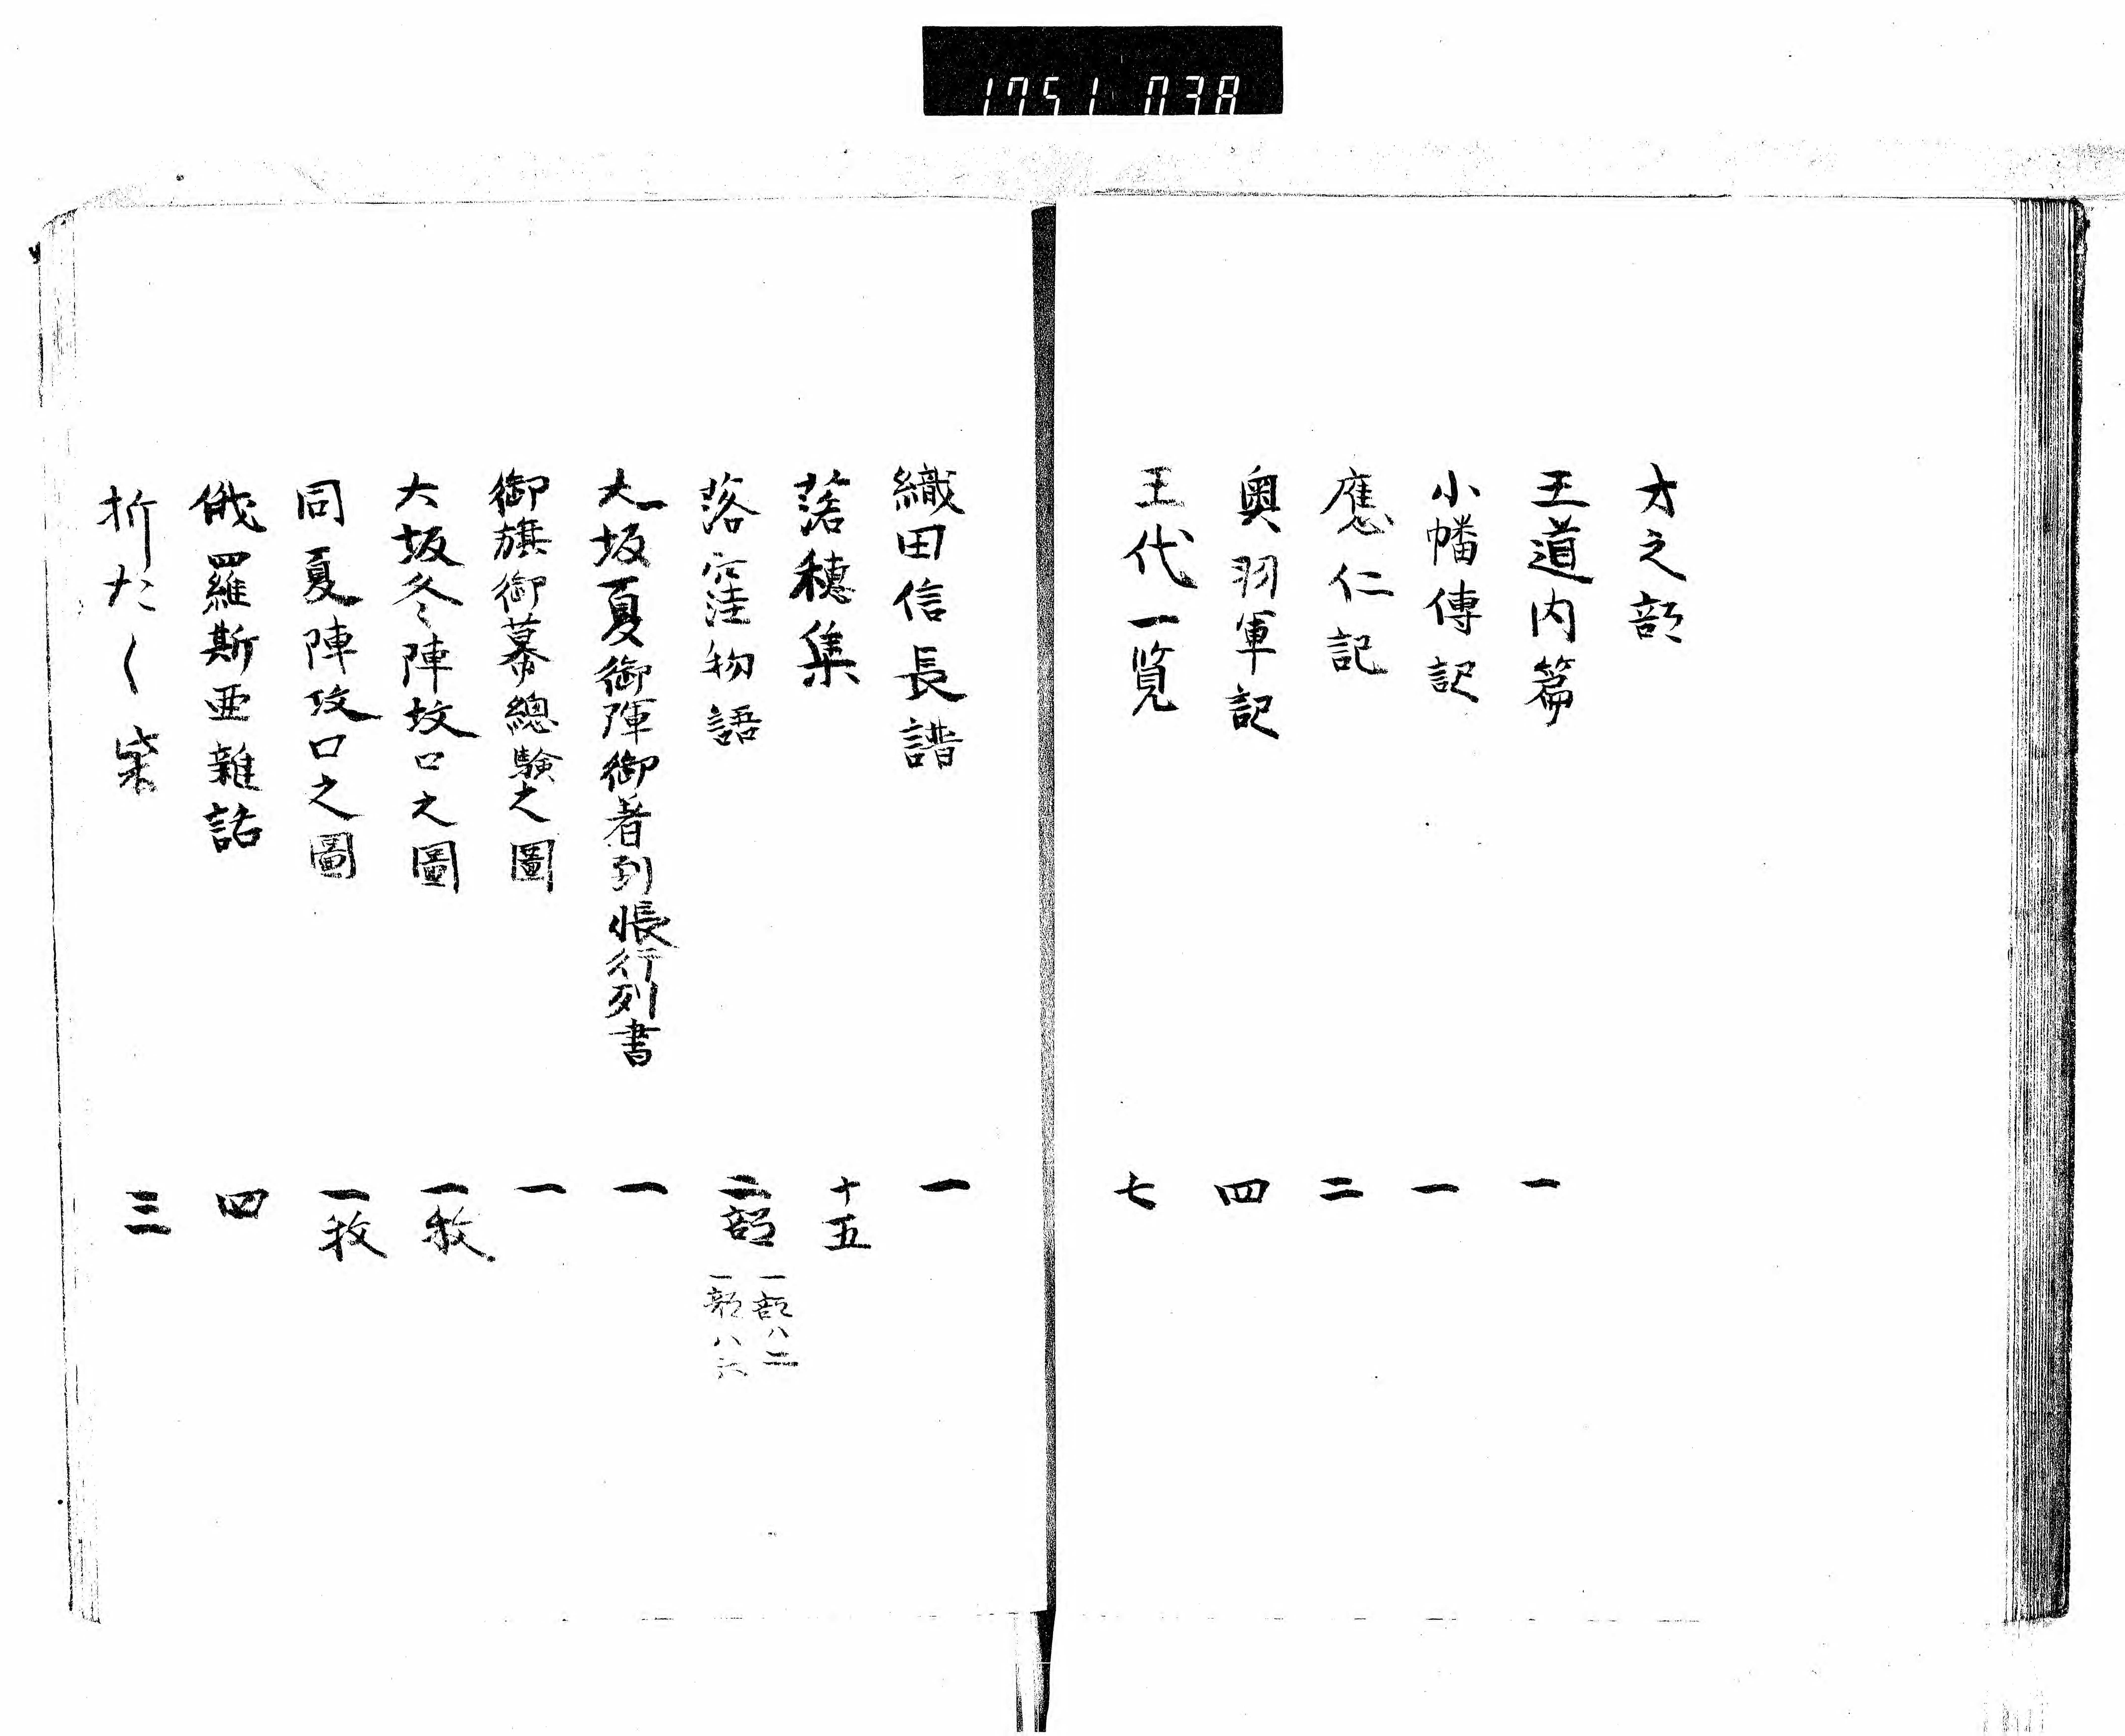 1751 038
オ之部
王道内篇 一
小幡傳記 一
應仁記 二
奥羽軍記 四
王代一覧 七
織田信長譜 一
落穂集 十五
落窪物語 二部 一部八二 一部八六
大坂夏御陣御著到帳行列書 一
御旗御幕總験之圖 一
大坂冬陣攻口之圖 一枚
同夏陣攻口之圖 一枚
俄羅斯亜雜話 四
折たく柴 三